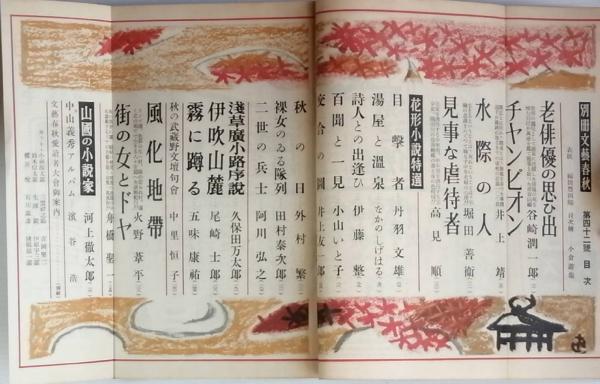 別冊文藝春秋
第四十二號目次
老俳優の思ひ出
谷崎潤一郎
チャンピオン
井上靖
水際の人
堀田善衞
見事な虐待者
高見順
花形小說特選
目擊者
丹羽文雄
湯屋と溫泉
なかのしげはる
詩人との出逢ひ
伊藤整
百聞と一見
小山いと子
交合の圖
井上友一郎
秋の日
外村繁
裸女のゐる隊列
田村泰次郎
二世の兵士
阿川弘之
淺草廣小路序說
久保田万太郎
伊吹山麓
尾崎士郎
霧に蹲る
五味康祐
秋の武蔵野文壇句會
中里恒子
風化地帶
火野葦平
街の女とドヤ
舟橋聖一
山國の小說家
河上徹太郎
中山義秀アルバム
濱谷浩
文藝春秋愛讀者大會御案内